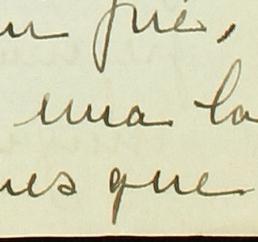 fué,
una la
ues que